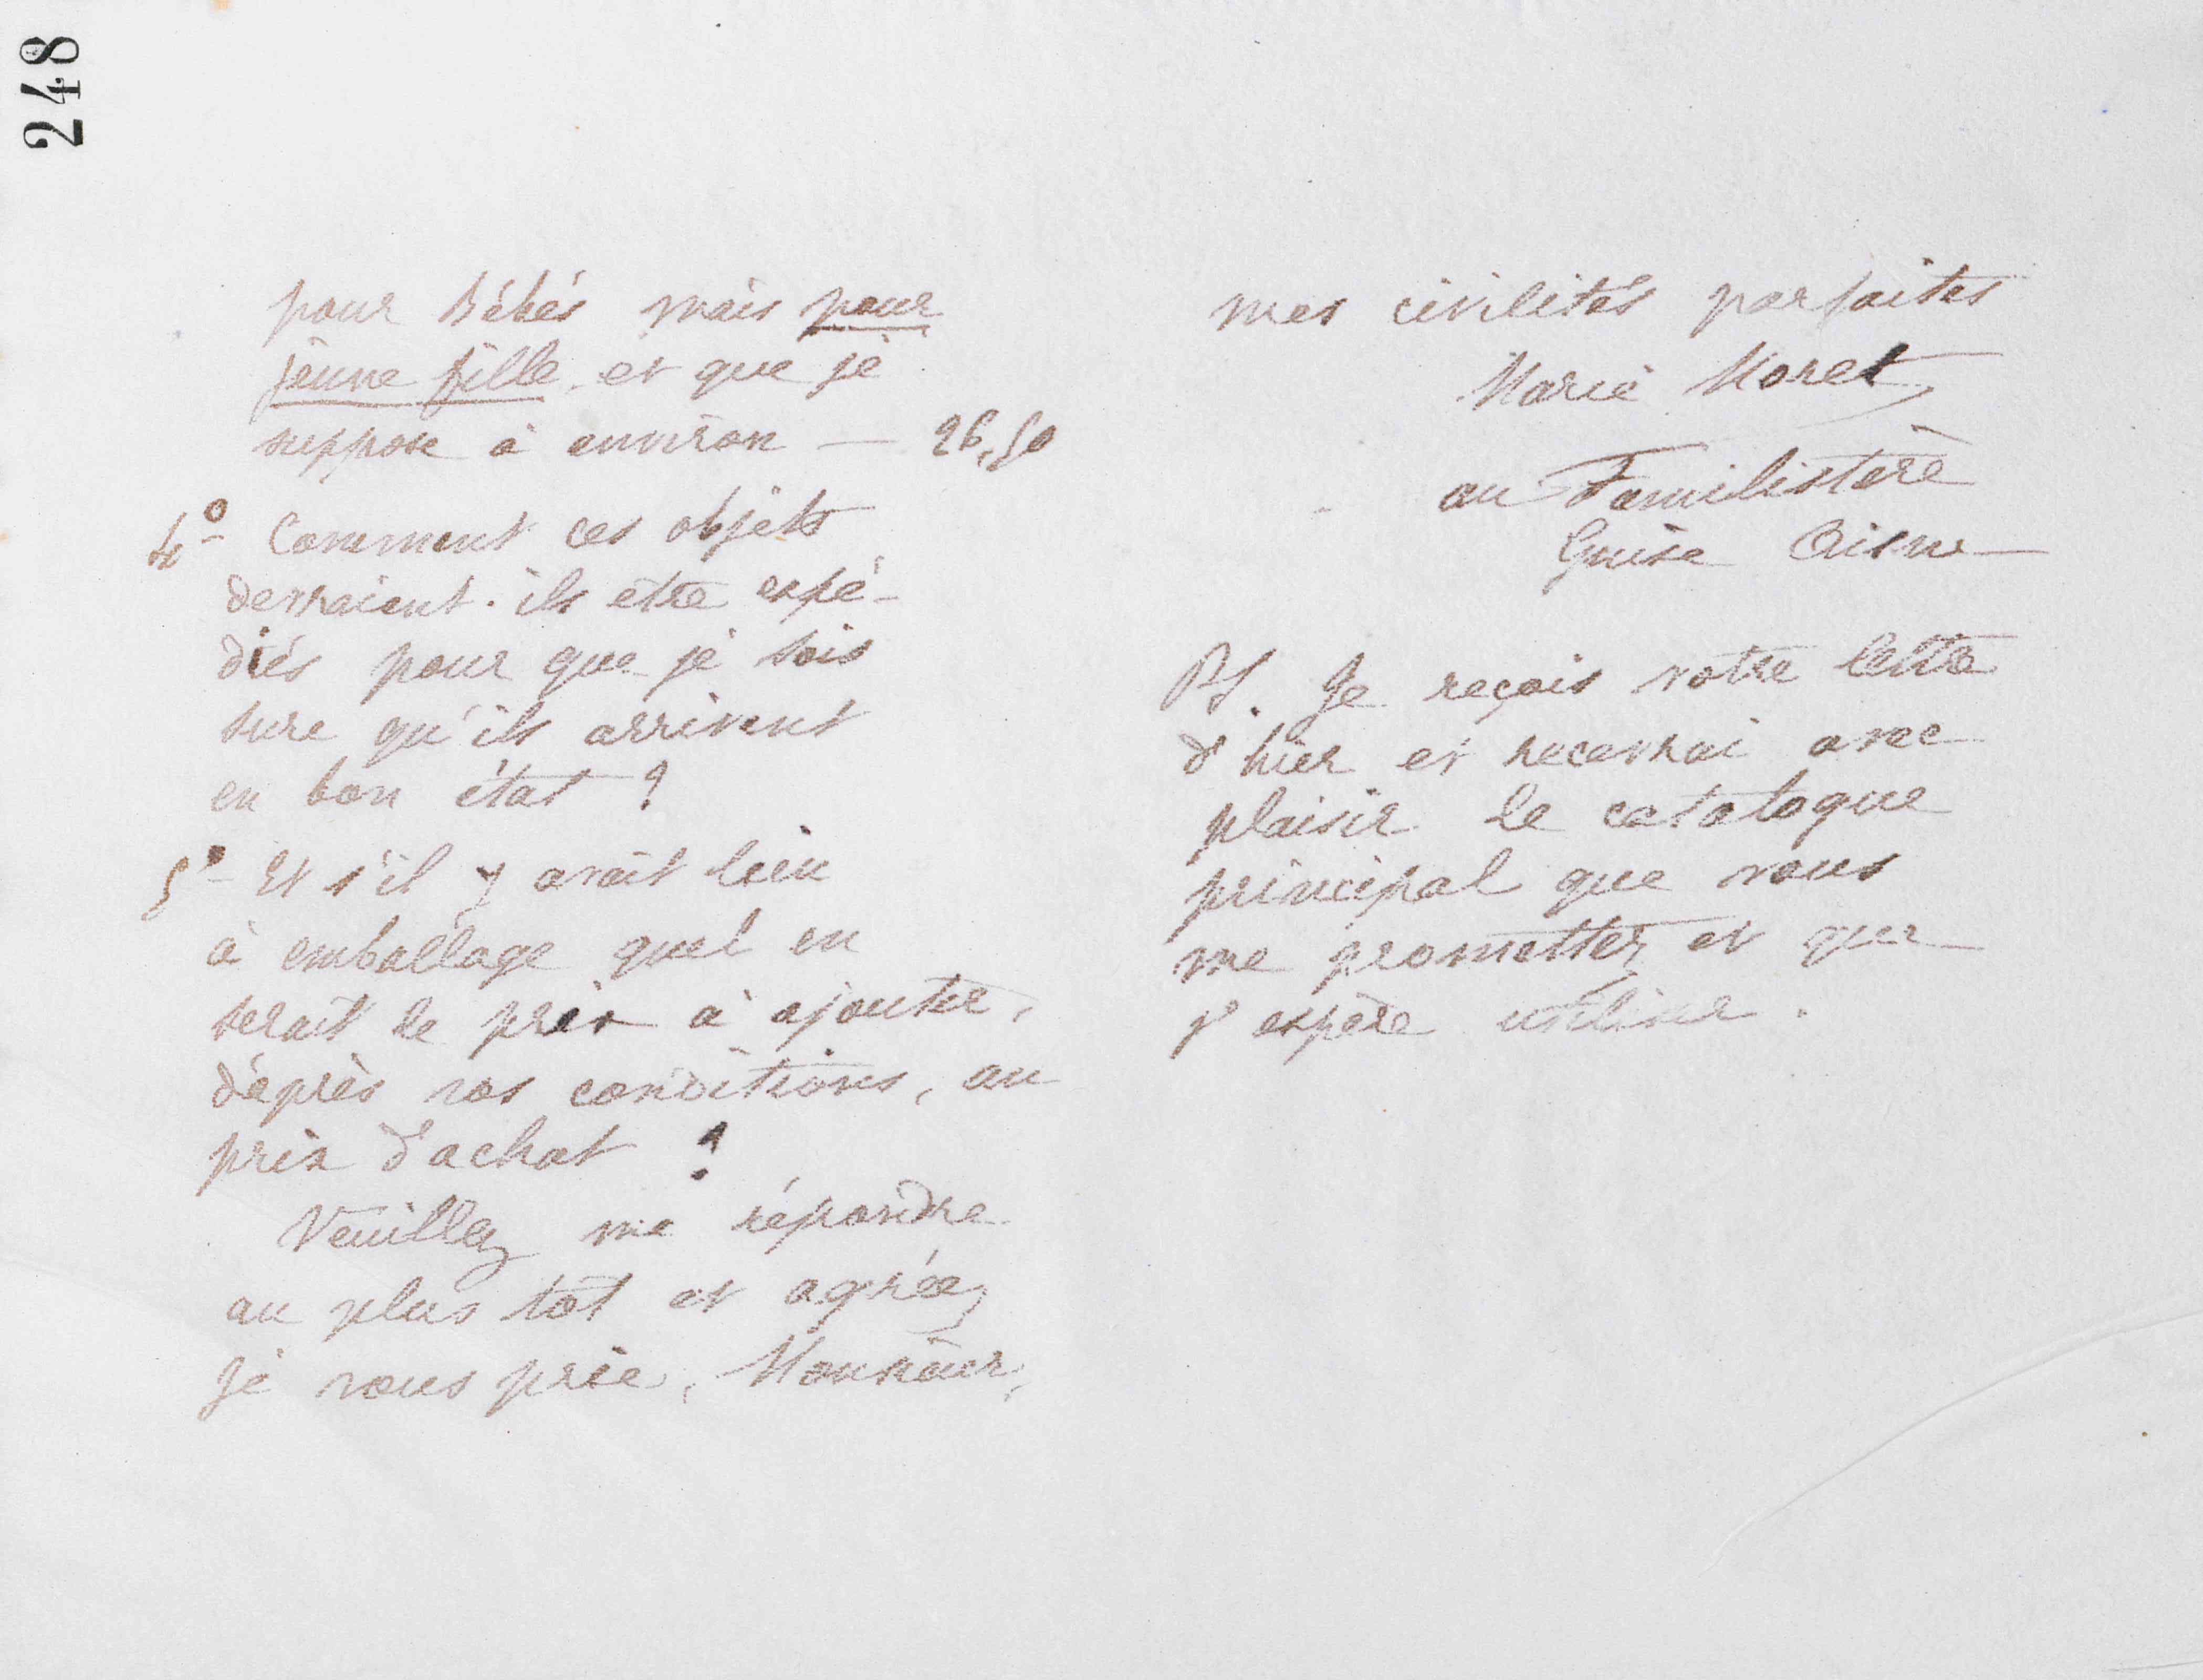 248
pour Bébés mais pour
jeune fille et que je
suppose à environ — 26,50
4° Comment ces objets
devraient-ils etre expé-
diés pour que je sois
sure qu'ils arrivent
en bon état ?
5° Et s'il y avait lieu
à emballage quel en
serait le prix à ajouter,
d'après vos conditions, au
prix d'achat ?
Veuillez me répondre
au plus tôt et agréez
je vous prie, Monsieur,
mes civilités parfaites
Marie Moret
au Familistère
Guise Aisne
PS. Je reçois votre lettre
d'hier et recevrai avec
plaisir le catalogue
principal que vous
me promettez et que
j'espère utiliser.